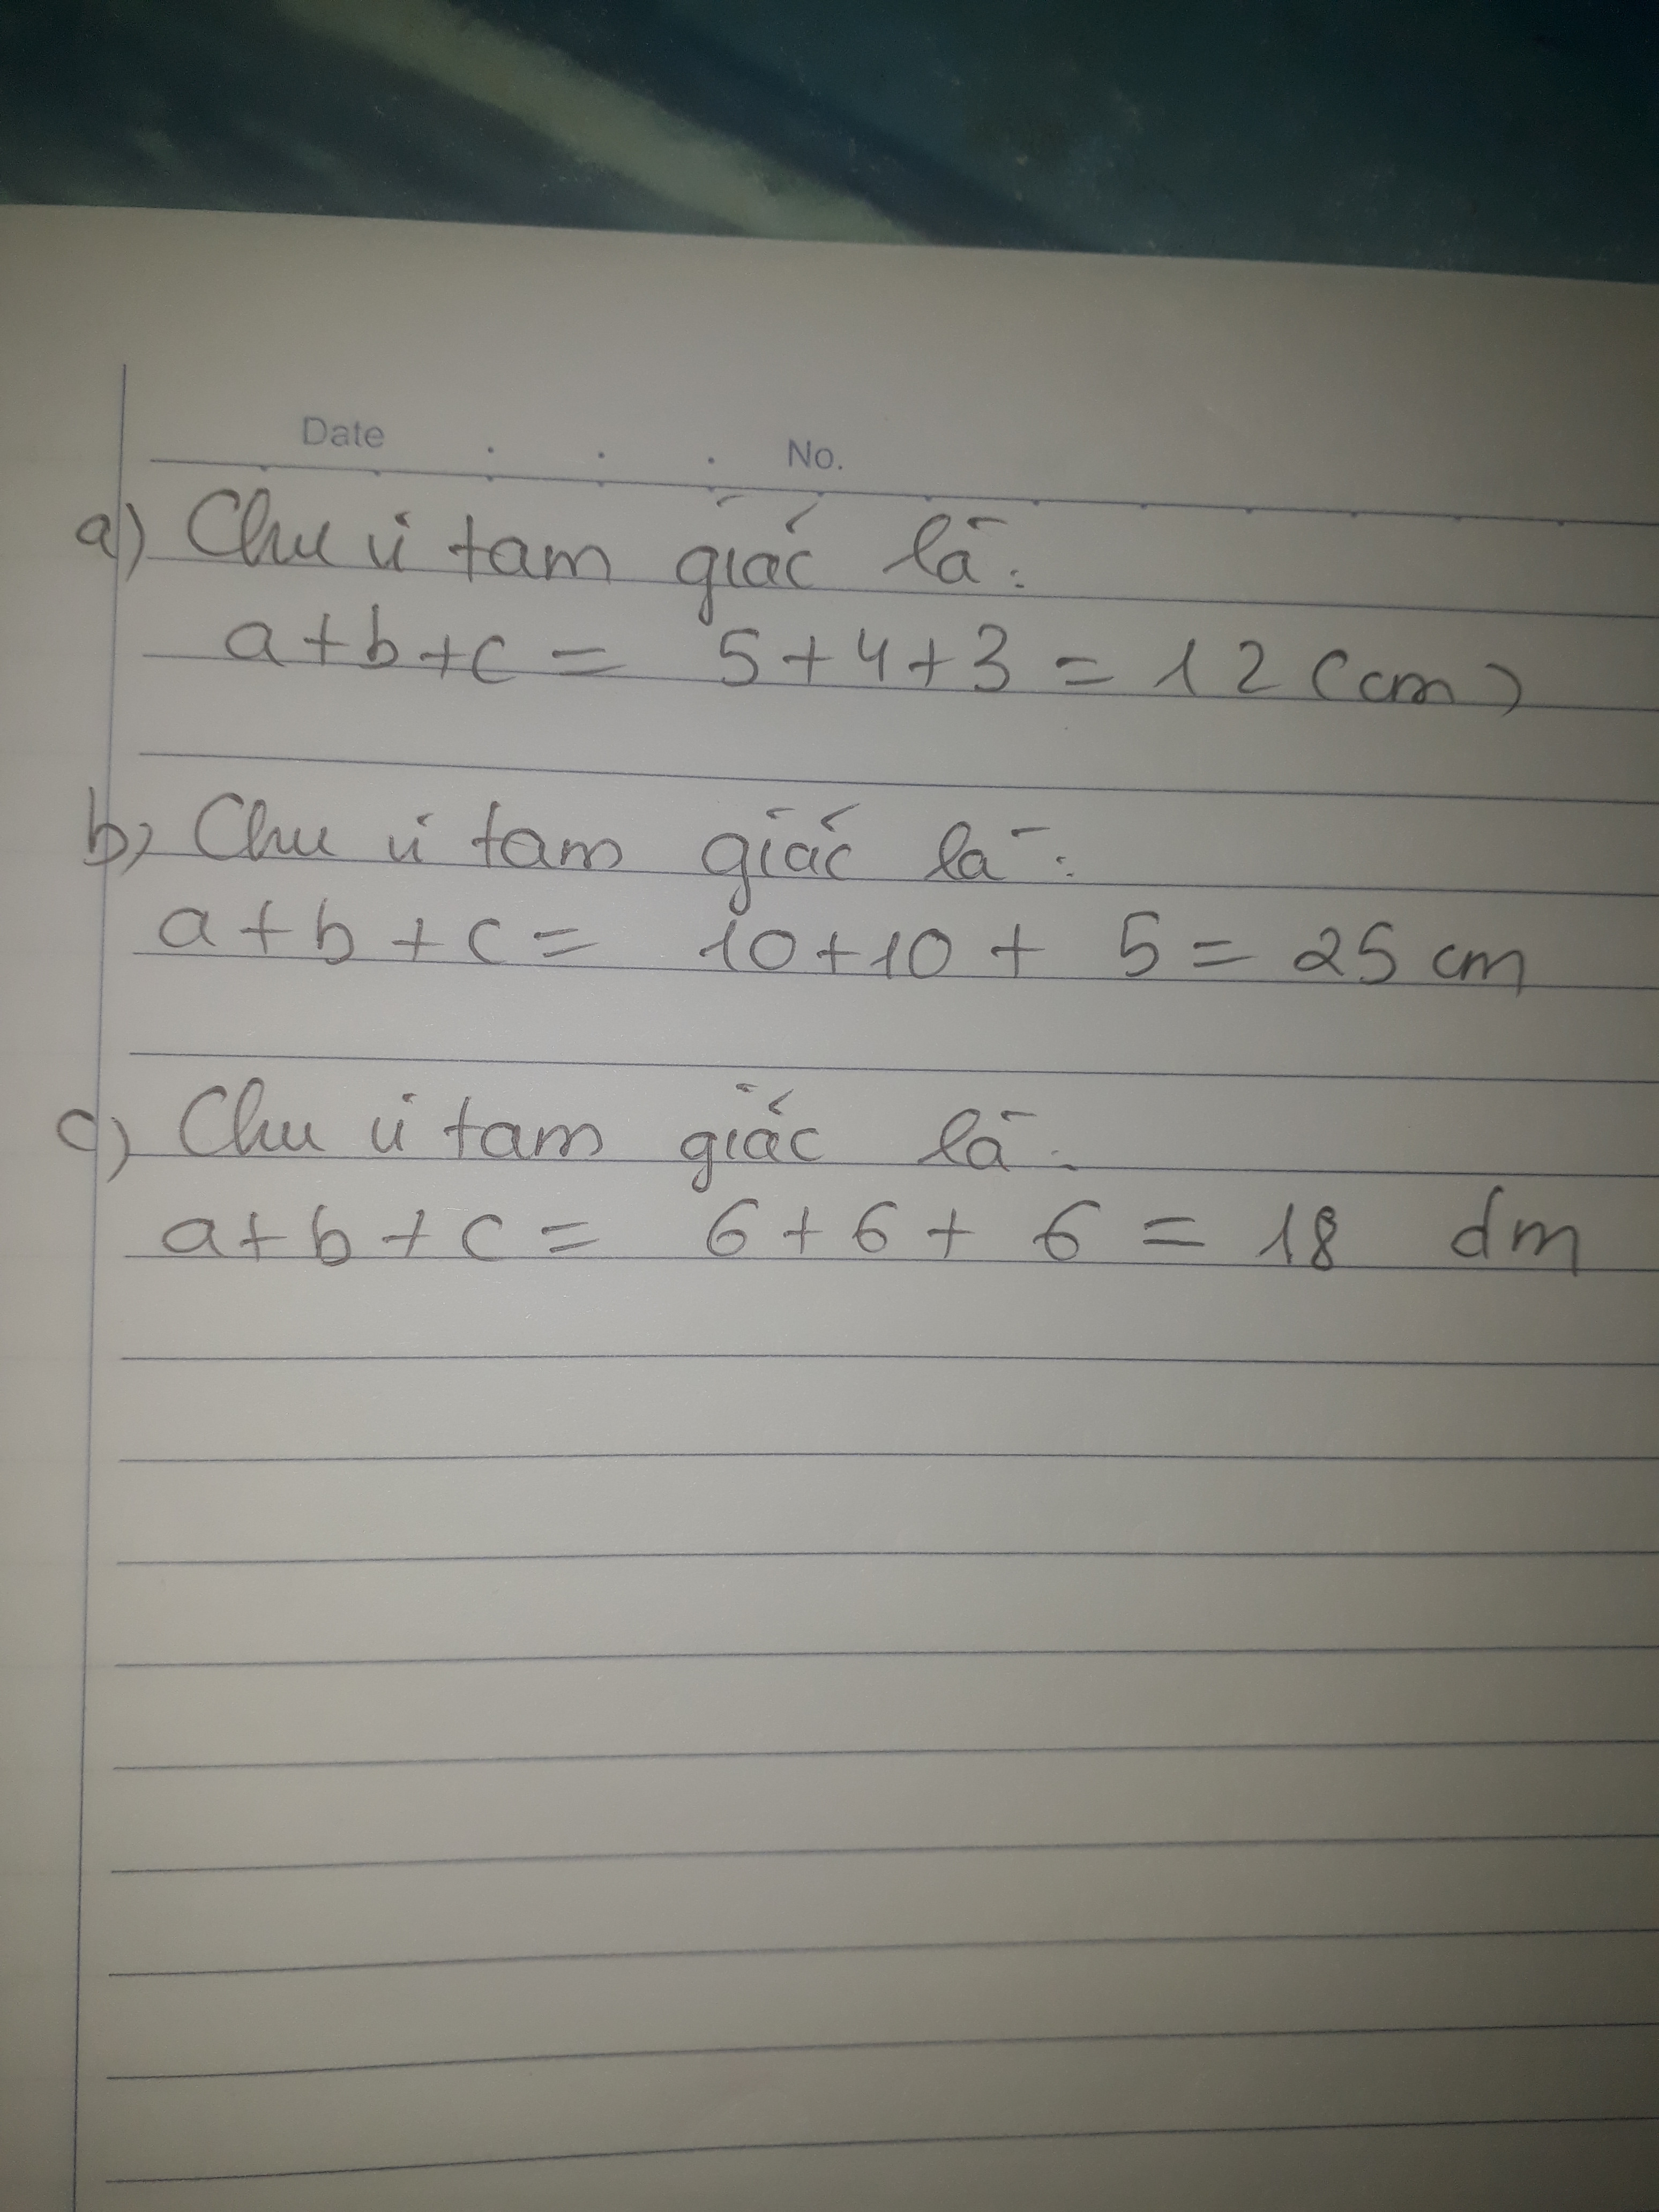 Date . . . No.
a) Chu vi tam giác là:
a+b+c = 5+4+3 = 12 (cm)
b) Chu vi tam giác là:
a+b+c = 10+10+ 5 = 25 cm
c) Chu vi tam giác là:
a+b+c = 6+6+ 6 = 18 dm